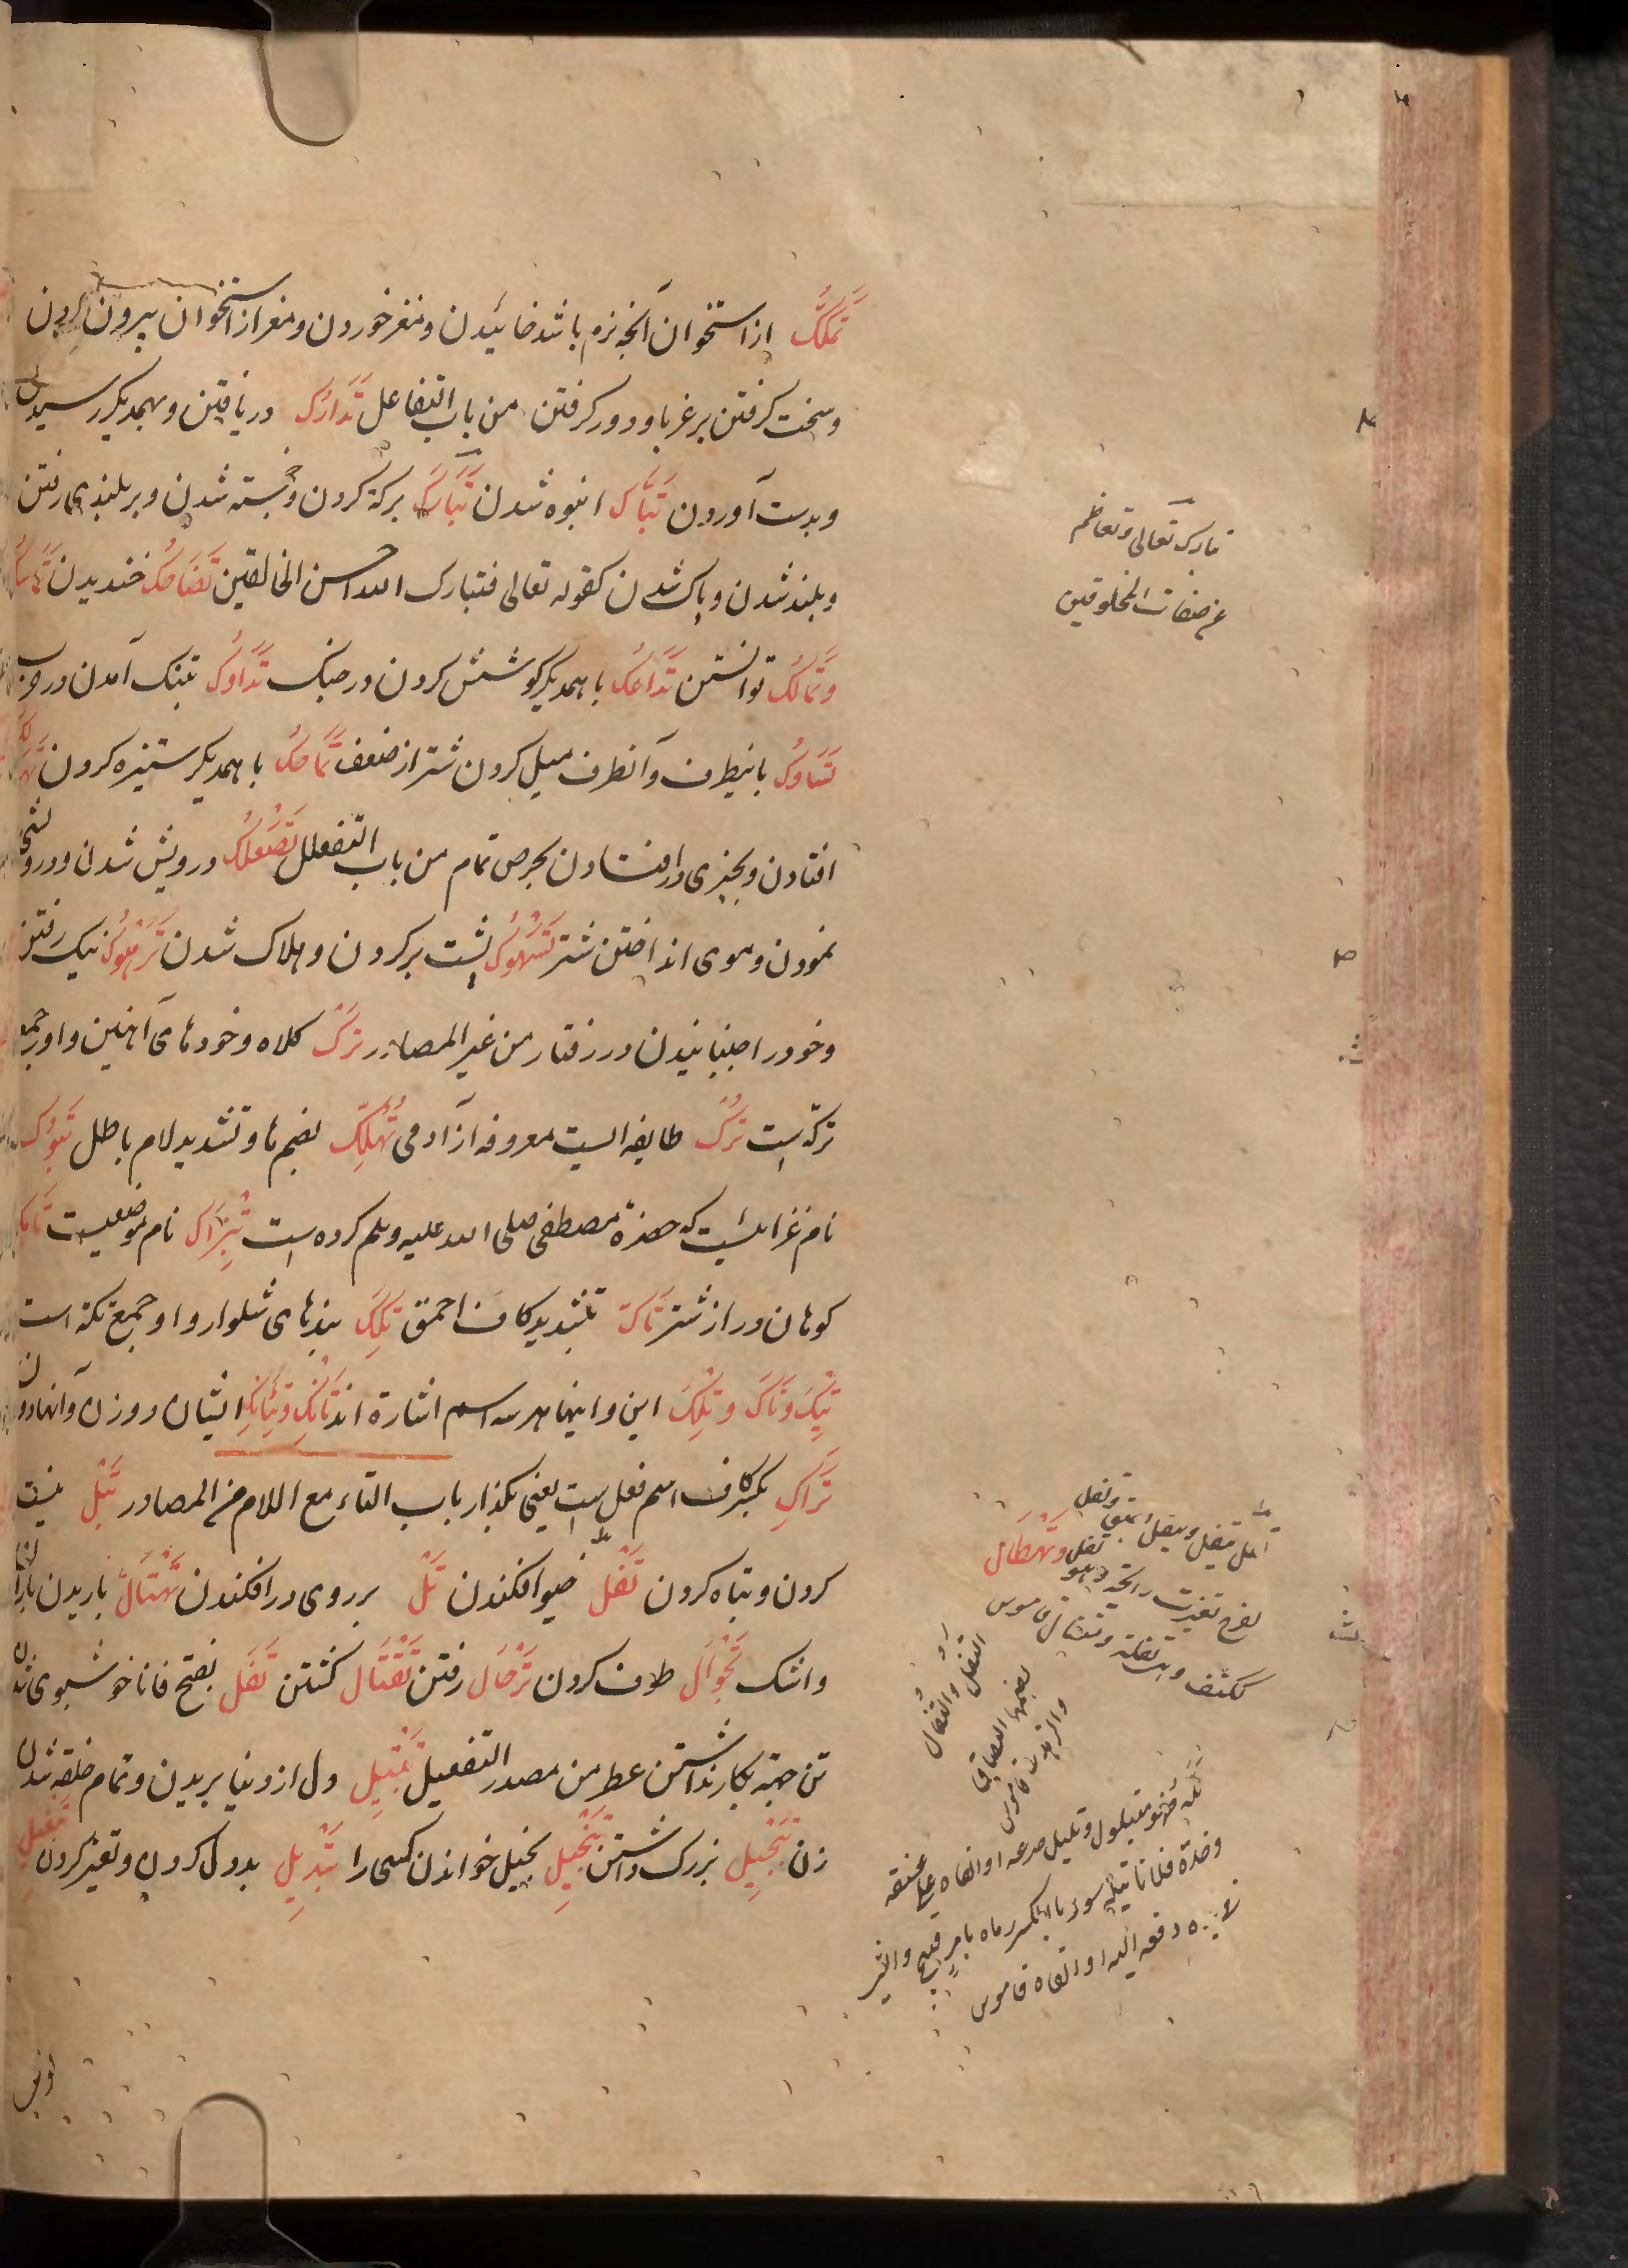 تَمَکُّک از استخوان آنچه نرم باشد خائیدن و مغز خوردن و مغز از استخوان بیرون کردن
و سخت گرفتن بر غرما و دور کرفتن من باب التفاعل تَدَارُک دریافتن و بهمدیکر رسیدن
و بدست آوردن تَبَاکّ انبوه شدن تَبَارَک برکة کردن و خجسته شدن و بر بلندی رفتن
و بلند شدن و پاک شدن کقوله تعالی فتبارک الله احسن الخالقین تَضَاحُک خندیدن
وتَمَالُک توانستن تَدَاعُک با همدیکر کوشش کردن در جنک تَدَاوُک تنک آمدن در حرب
تَسَاوُک باینطرف و آنطرف میل کردن شتر از ضعف تَمَاحُک با همدیکر ستیزه کردن
افتادن و بچیزی در افتادن بحرص تمام من باب التفعلل تَصَعْلُک درویش شدن و درویشی
نمودن و موی انداختن شتر تَسَهْوُک پشت بر کردن و هلاک شدن تَرَهْوُک نیک رفتن
و خود را جنبانیدن در رفتار من غیر المصادر تَرْک کلاه و خودهای آهنین و او جمع
ترکة است تُرْک طایفه ایست معروفه از آدمی تُهُلِّک بضم ها و تشدید لام باطل تَبُوک
نام غزائیست که حضرة مصطفی صلی الله علیه وسلم کرده است تِبْرَاک نام موضعیست تَامِک
کوهان دراز شتر تَاکّ بتشدید کاف احمق تِکَک بندهای شلوار و او جمع تکة است
تِیکَ وتَاکَ وتِلْکَ این و اینها هر سه اسم اشارة اند تَانِکَ وتَیْنِکَ ایشان دو زن و آنها دو زن
تَرَاکِ بکسر کاف اسم فعل است یعنی بکذار باب التاء مع اللام من المصادر تَبْل نیست
کردن و تباه کردن تَفْل خیو افکندن تَلّ بر روی در افکندن تَهْتَال باریدن باران
و اشک تَجْوَال طوف کردن تَرْحَال رفتن تَقْتَال کشتن تَفَل بفتح فا ناخوشبوی شدن
تن جهة بکار نداشتن عطر من مصدر التفعیل تَبْتِیل دل از دنیا بریدن و تمام خلقة شدن
زن تَبْجِیل بزرک داشتن تَبْخِیل بخیل خواندن کسی را تَبْدِیل بدل کردن و تغیر کردن
تبارک تعالی و تعاظم
عن صفات المخلوقین
تفل یتفل ویتفل بصق وتفل
وتَهْطَال
کفرح تغیرت رائحته وهو تفل
ککتف وهی تفلة ومتفال قاموس
التفل والتفال
بضمهما البصاق
والزبد قاموس
تله فهو متلول وتلیل صرعه او القاه علی عنقه
وخده فلانا بتلة سوء بالکسر رماه بامر قبیح والشیء
فی یده دفعه الیه او القاه قاموس